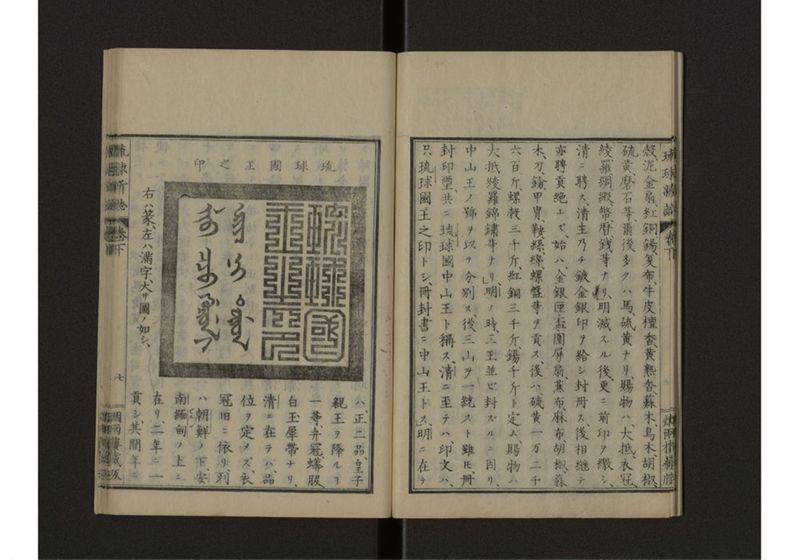 琉球新誌 卷下
縠泥金扇紅銅錫夏布牛皮檀香黄熟香蘇木烏木胡椒
硫黄磨石等、爾後多クハ馬、硫黄ナリ、賜物ハ、大抵衣冠、
綾羅綢緞幣暦錢等ナリ、明滅スル後更ニ前印ヲ繳シ、
清ニ聘ス、清主乃チ鍍金銀印ヲ給シ封冊ス、後相継テ
亦聘貢絶エズ、始ハ金銀匣盃圍屏扇蕉布麻布胡椒蘇
木刀鎗甲冑鞍螺盤等ヲ貢ス、後ハ硫黄一万二千
六百斤、螺殻三千斤、紅銅三千斤、錫千斤ト定ム、賜物ハ
大抵綾羅錦繍等ナリ、明ノ時、三王並ビ封ズルニ因リ、
中山王ノ號ヲ以テ分別ス、後三山ヲ一統スト雖モ冊
封印璽共ニ琉球國中山王ト稱ス、清ニ至テハ印文ハ、
只琉球國王之印トシ、冊封書ニ中山王トス、明ニ在テ
琉球國王之印
琉球國王之印
ハ、正二品、皇子
親王ヲ降ル
一等、弁冠蟒服
白玉犀帶ナリ、
清ニ在テハ品
位ヲ定メズ、衣
冠旧ニ依リ、列
ハ朝鮮ノ下安
南緬甸ノ上ニ
在リ、二年ニ一
貢シ、其間年ニ
右ハ篆、左ハ滿字、大サ圖ノ如シ、
琉球新誌 卷下
七